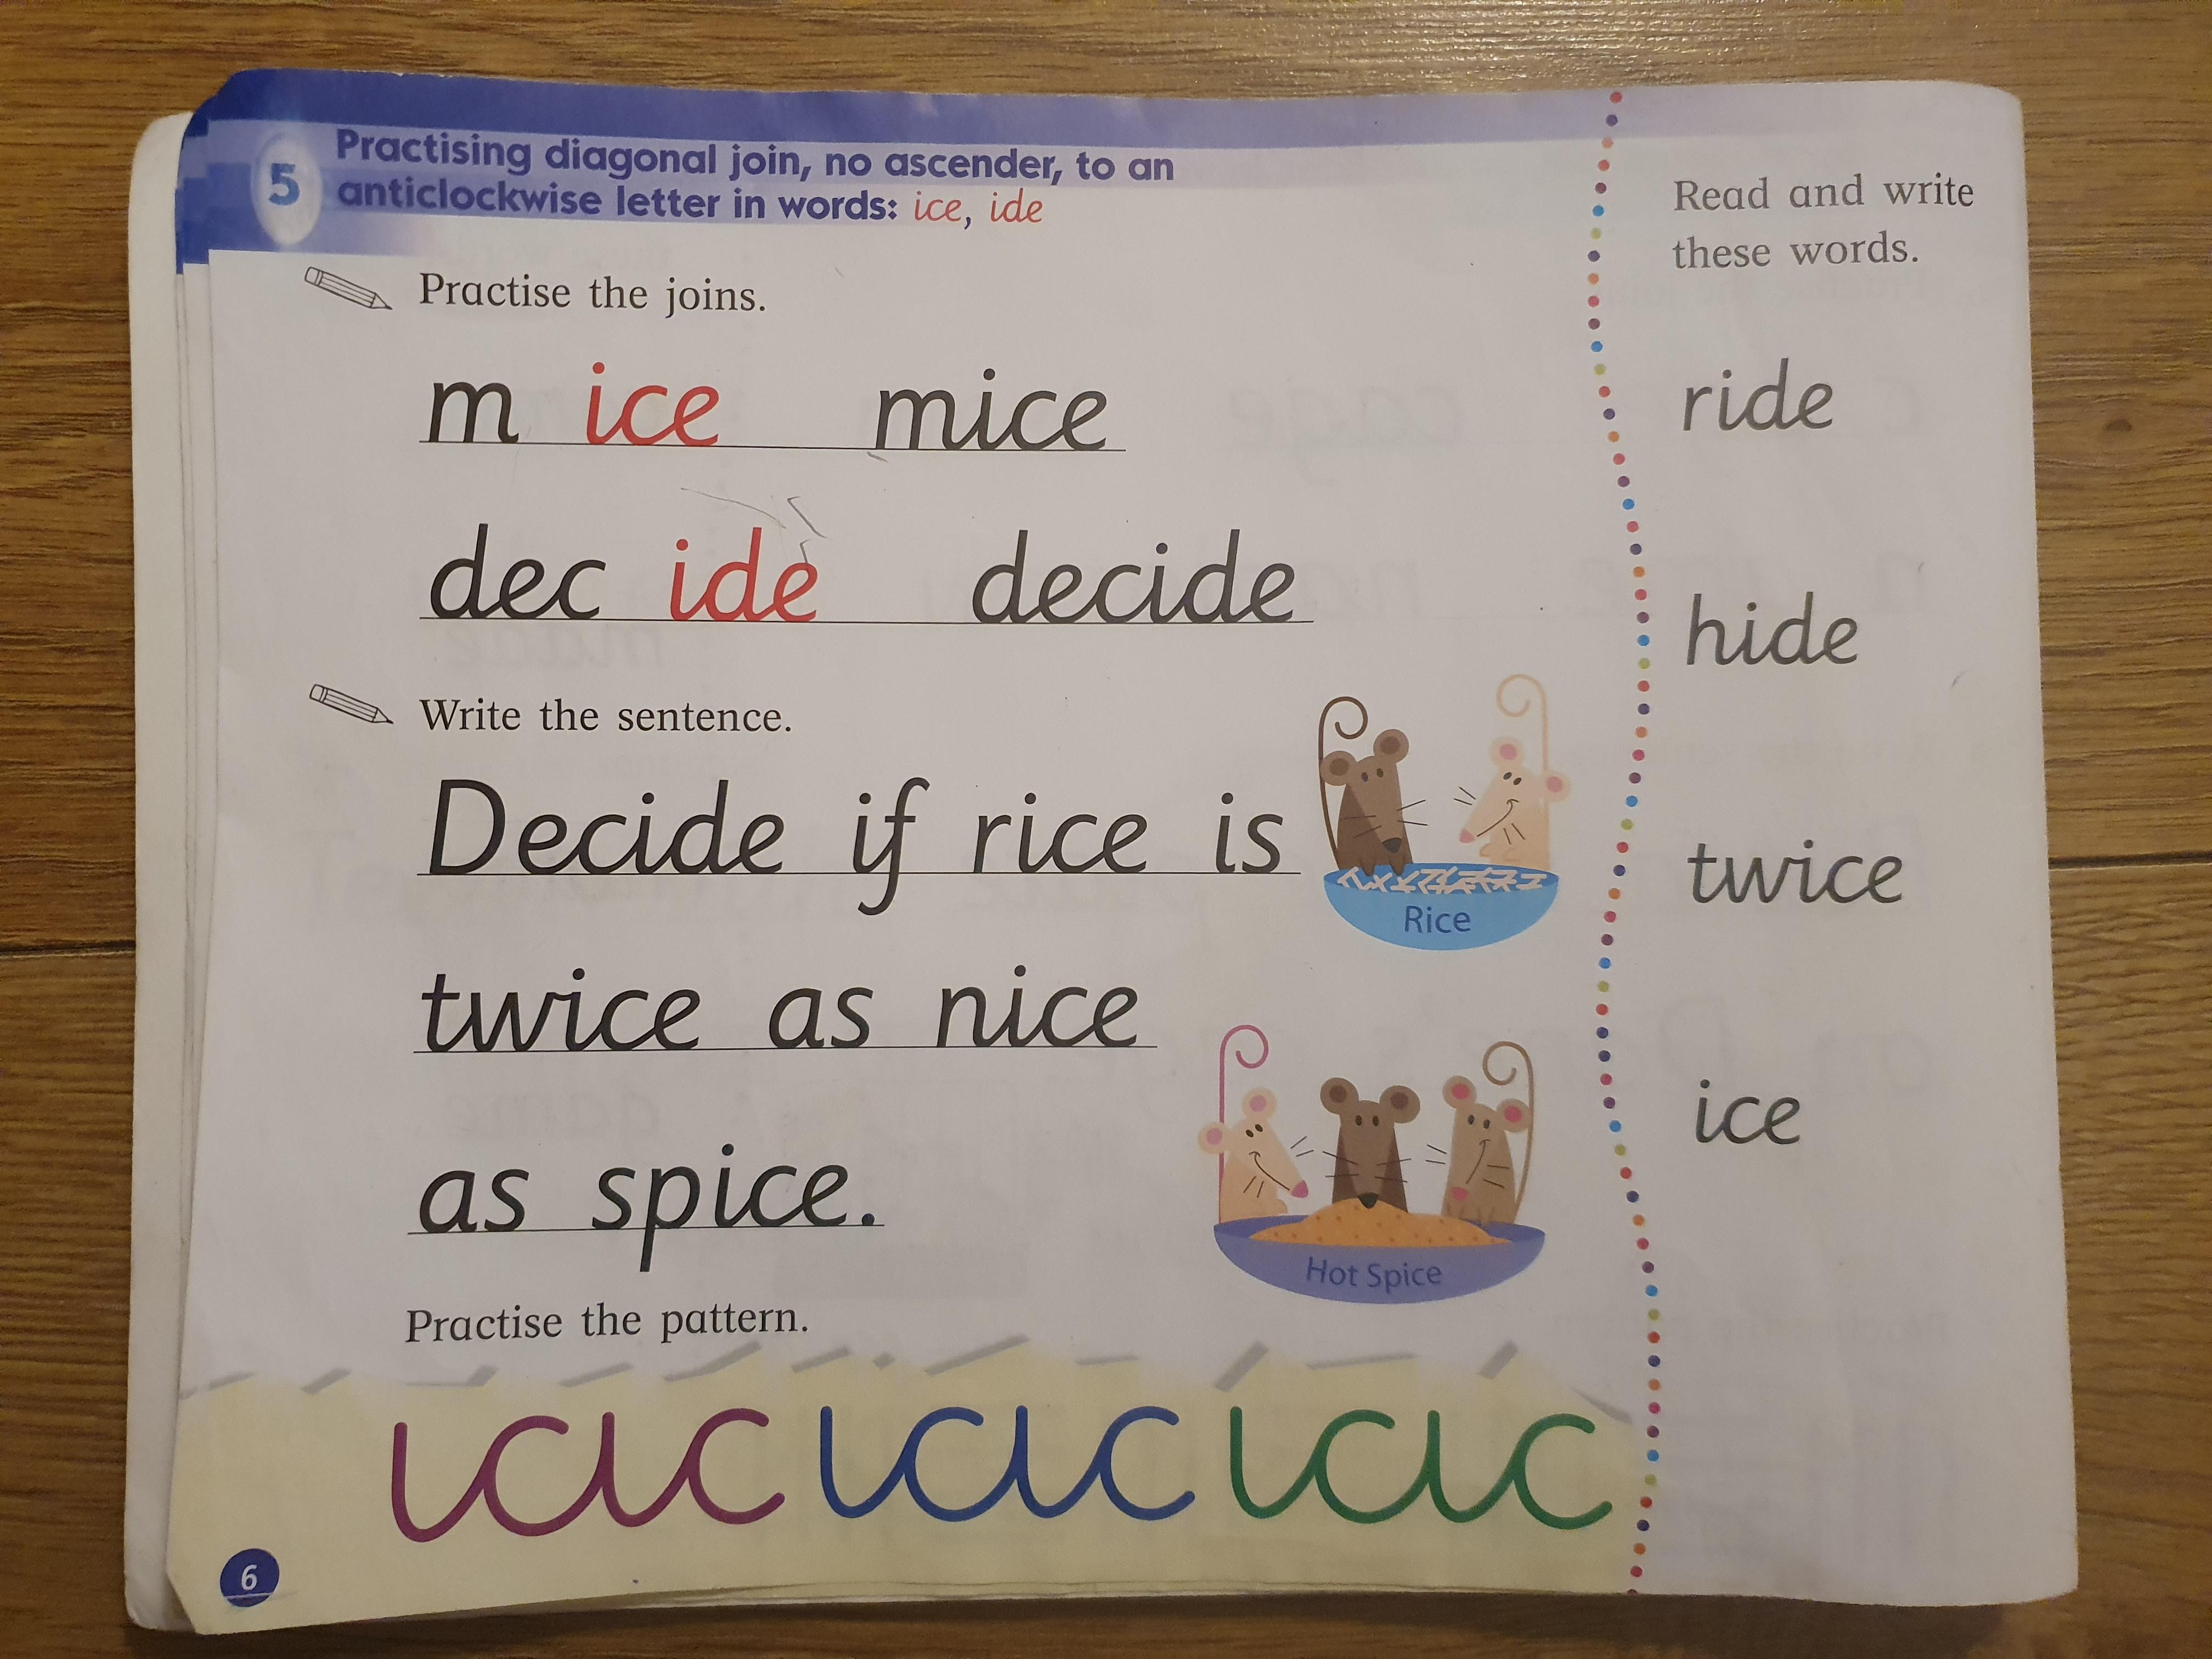 5
Practising diagonal join, no ascender, to an
anticlockwise letter in words: ice, ide
Practise the joins.
m ice mice
dec ide decide
Write the sentence.
Decide if rice is
Rice
twice as nice
as spice.
Hot Spice
Practise the pattern.
ıcıc ıcıc ıcıc
6
Read and write
these words.
ride
hide
twice
ice